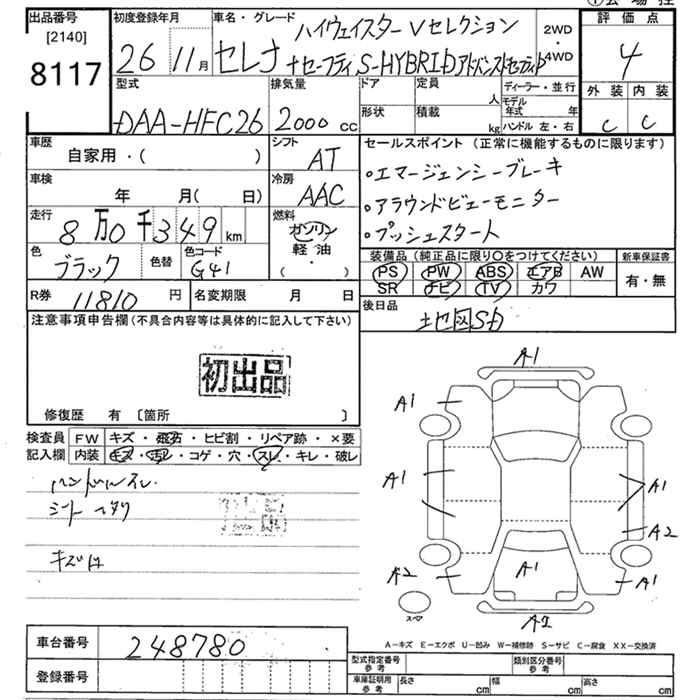 出品番号
[2140]
8117
初度登録年月
26 11月
車名・グレード
ハイウェイスター Vセレクション
セレナ +セーフティ S-HYBRID アドバンストセーフティP
2WD
・
4WD
評価点
4
外装 内装
C C
型式
DAA-HFC26
排気量
2000 cc
ドア
形状
定員
人
積載
kg
ディーラー・並行
モデル年式 年
ハンドル 左・右
車歴
自家用・( )
シフト
AT
車検
年 月( 日)
冷房
AAC
走行
8万0千349 km
燃料
ガソリン
軽油
・
( )
色
ブラック
色替
色コード
G41
R券 11810 円
名変期限 月 日
セールスポイント (正常に機能するものに限ります)
・エマージェンシーブレーキ
・アラウンドビューモニター
・プッシュスタート
装備品 (純正品に限り○をつけてください)
PS PW ABS エアB AW
SR ナビ TV カワ
新車保証書
有・無
後日品
地図SD
注意事項申告欄 (不具合内容等は具体的に記入して下さい)
初出品
修復歴 有 〔箇所 〕
検査員
記入欄
FW キズ・飛石・ヒビ割・リペア跡・×要
内装 キズ・汚レ・コゲ・穴・スレ・キレ・破レ
ハンドルスレ
シート ヘタリ
キズ
A1
A1
A1
A1
A2
A2
A1
A1
A2
スペア
A-キズ E-エクボ U-凹み W-補修跡 S-サビ C-腐食 XX-交換済
車台番号 248780
登録番号
型式指定番号
参考
類別区分番号
参考
車庫証明用
参考
長さ cm
幅 cm
高さ cm